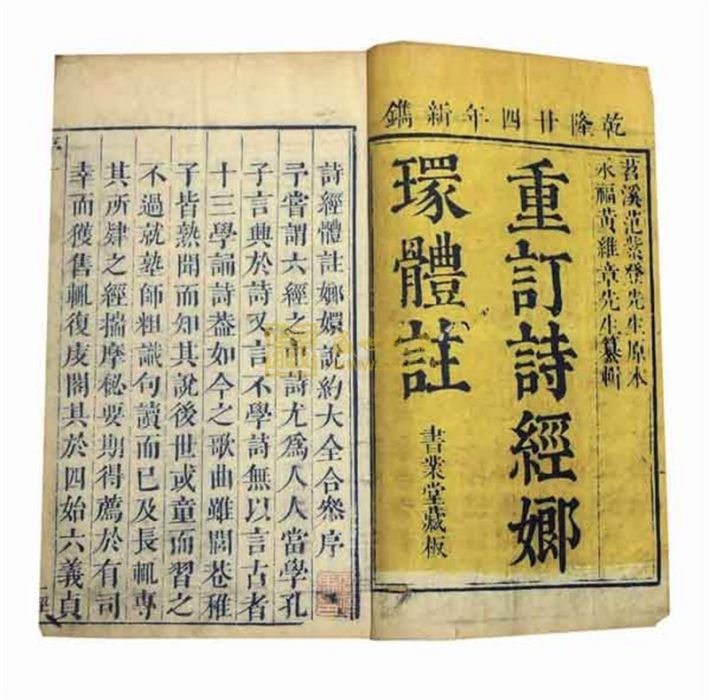 乾隆廿四年新鐫
苕溪范紫登先生原本
永福黃維章先生纂輯
重訂詩經嫏
環體註
書業堂藏板
詩經體註嫏嬛說約大全合叅序
予嘗謂六經之中詩尤爲人人當學孔
子言興於詩又言不學詩無以言古者
十三學誦詩葢如今之歌曲雖閭巷稚
子皆熟聞而知其說後世或童而習之
不過就塾師粗識句讀而已及長輒專
其所肄之經揣摩秘要期得薦於有司
幸而獲售輒復庋閣其於四始六義貞
序